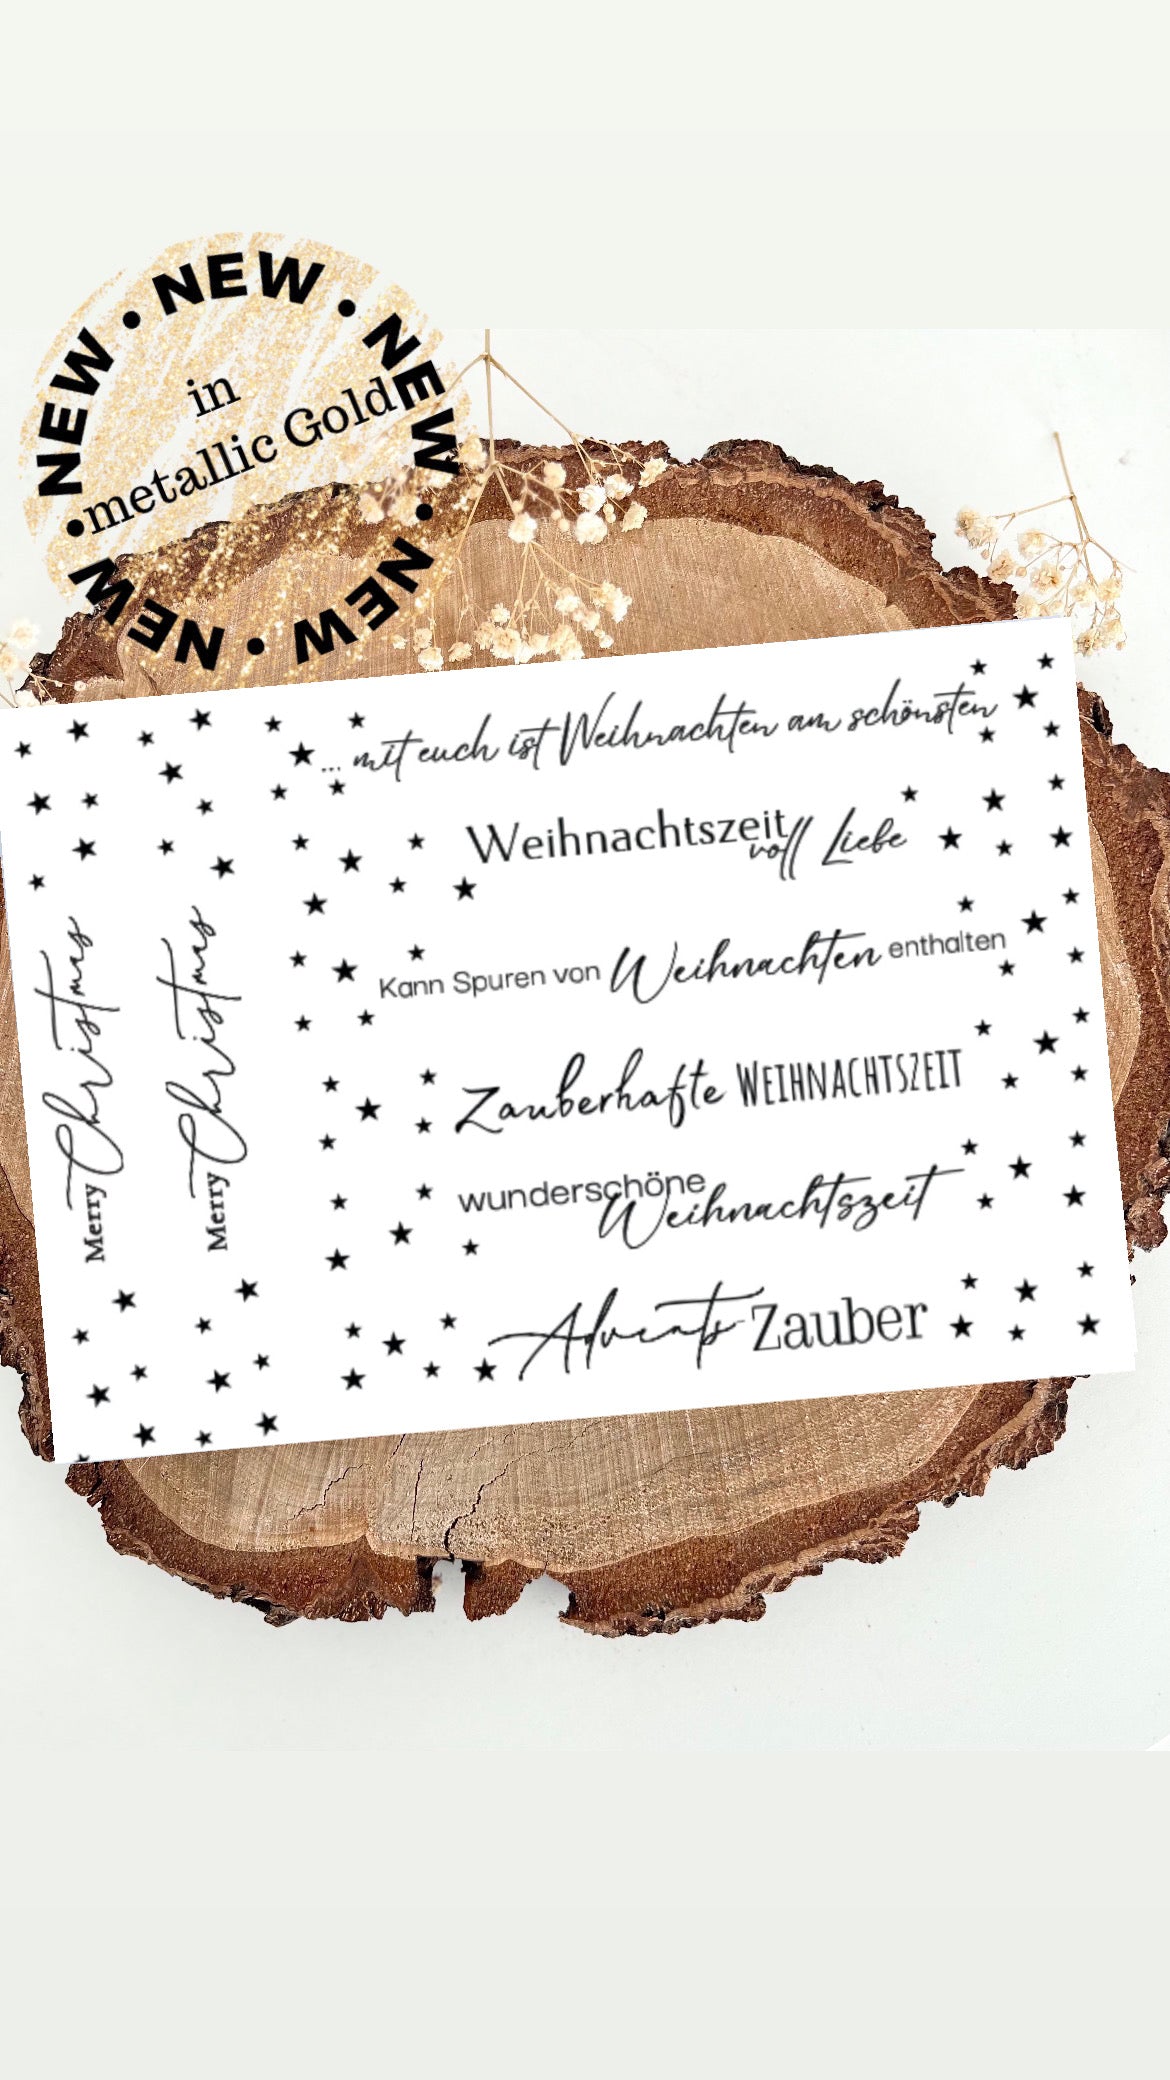 NEW • NEW • NEW • NEW • NEW • NEW •
in
metallic Gold
... mit euch ist Weihnachten am schönsten
Weihnachtszeit
voll Liebe
Kann Spuren von Weihnachten enthalten
Zauberhafte WEIHNACHTSZEIT
wunderschöne
Weihnachtszeit
Advents-Zauber
Merry Christmas
Merry Christmas